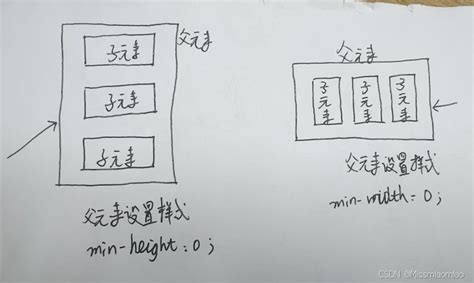 父元素
子元素
子元素
子元素
父元素设置样式
min-height:0;
父元素
子元素
子元素
子元素
父元素设置样式
min-width:0;
CSDN @Missmiaomiao